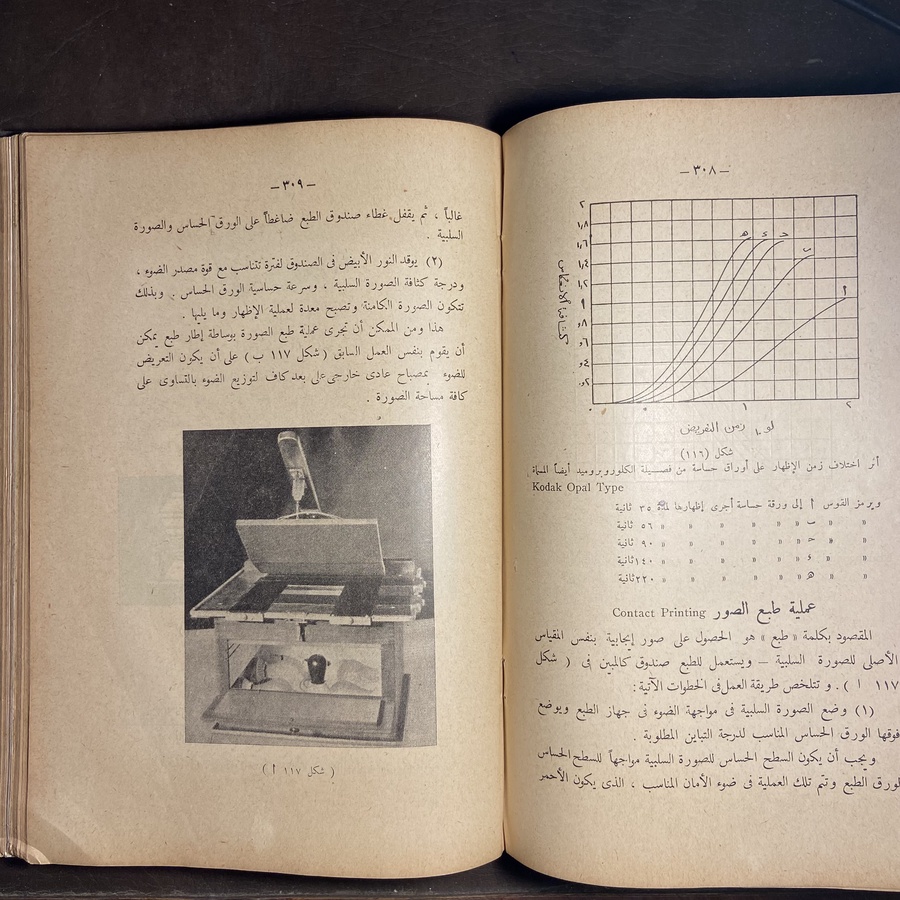 — ٣٠٨ —
٢
١,٨
١,٦
١,٤
١,٢
١
,٨
,٦
,٤
,٢
كثافة الانعكاس
هـ ء حـ ب أ
٠ ١ ٢
لو١٠ زمن التعريض
شكل (١١٦)
أثر اختلاف زمن الإظهار على أوراق حساسة من فصيلة الكلوروبروميد أيضاً المسماة
Kodak Opal Type
ويرمز القوس أ إلى ورقة حساسة أجرى إظهارها لمدة ٣٥ ثانية
» » ب » » » » » ٥٦ ثانية
» » حـ » » » » » ٩٠ ثانية
» » ء » » » » » ١٤٠ ثانية
» » هـ » » » » » ٢٢٠ ثانية
عملية طبع الصور Contact Printing
المقصود بكلمة « طبع » هو الحصول على صور إيجابية بنفس المقياس
الأصلى للصورة السلبية — ويستعمل للطبع صندوق كالمبين فى ( شكل
١١٧ أ ) . و تتلخص طريقة العمل فى الخطوات الآتية :
(١) وضع الصورة السلبية فى مواجهة الضوء فى جهاز الطبع ويوضع
فوقها الورق الحساس المناسب لدرجة التباين المطلوبة .
ويجب أن يكون السطح الحساس للصورة السلبية مواجهاً للسطح الحساس
لورق الطبع وتتم تلك العملية فى ضوء الأمان المناسب ، الذى يكون الأحمر
— ٣٠٩ —
غالباً ، ثم يقفل غطاء صندوق الطبع ضاغطاً على الورق الحساس والصورة
السلبية .
(٢) يوقد النور الأبيض فى الصندوق لفترة تتناسب مع قوة مصدر الضوء ،
ودرجة كثافة الصورة السلبية ، وسرعة حساسية الورق الحساس . وبذلك
تتكون الصورة الكامنة وتصبح معدة لعملية الإظهار وما يليها .
هذا ومن الممكن أن تجرى عملية طبع الصورة بوساطة إطار طبع يمكن
أن يقوم بنفس العمل السابق ( شكل ١١٧ ب ) على أن يكون التعريض
للضوء بمصباح عادى خارجى على بعد كاف لتوزيع الضوء بالتساوى على
كافة مساحة الصورة .
( شكل ١١٧ أ )